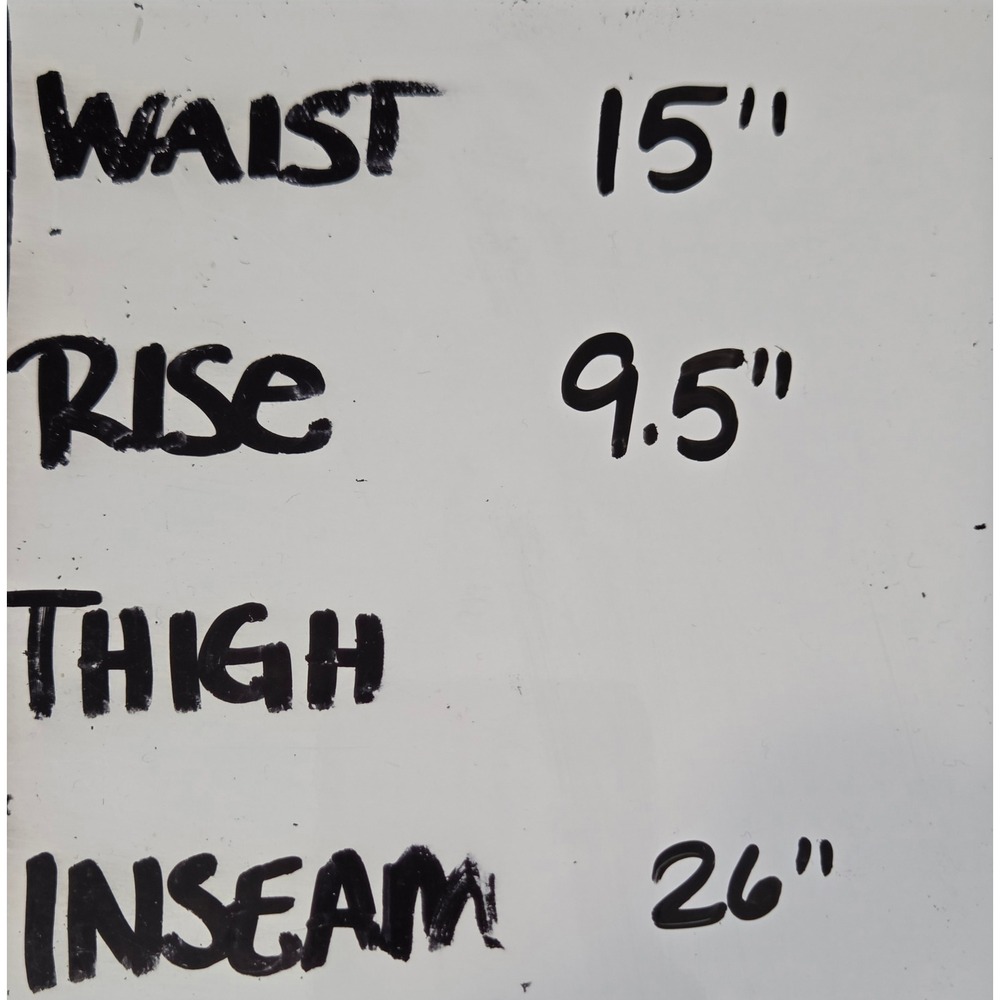 WAIST 15"
RISE 9.5"
THIGH
INSEAM 26"